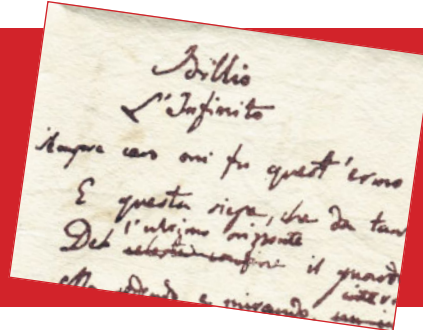 Idillio
L'Infinito
Sempre caro mi fu quest'ermo
E questa siepe, che da tan
l'ultimo orizzonte
Del celeste confine il guard
Ma sedendo e mirando,